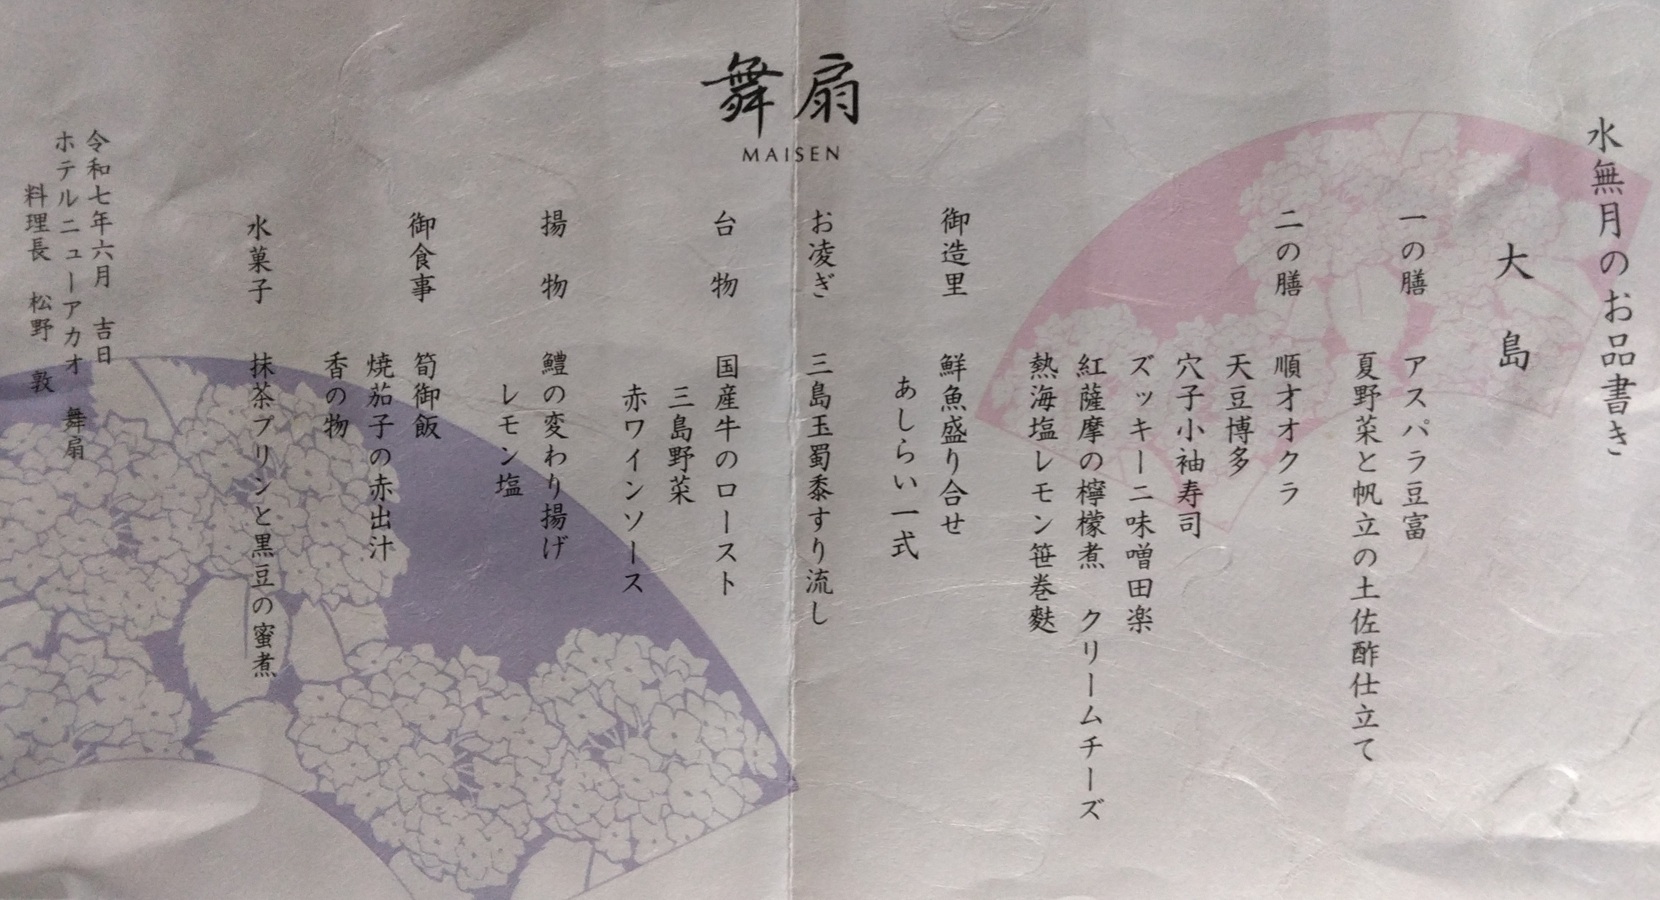 舞扇
MAISEN
水無月のお品書き
大島
一の膳
アスパラ豆富
夏野菜と帆立の土佐酢仕立て
二の膳
順才オクラ
天豆博多
穴子小袖寿司
ズッキーニ味噌田楽
紅薩摩の檸檬煮 クリームチーズ
熱海塩レモン笹巻麩
御造里
鮮魚盛り合せ
あしらい一式
お凌ぎ
三島玉蜀黍すり流し
台物
国産牛のロースト
三島野菜
赤ワインソース
揚物
鱧の変わり揚げ
レモン塩
御食事
筍御飯
焼茄子の赤出汁
香の物
水菓子
抹茶プリンと黒豆の蜜煮
令和七年六月 吉日
ホテルニューアカオ 舞扇
料理長 松野 敦